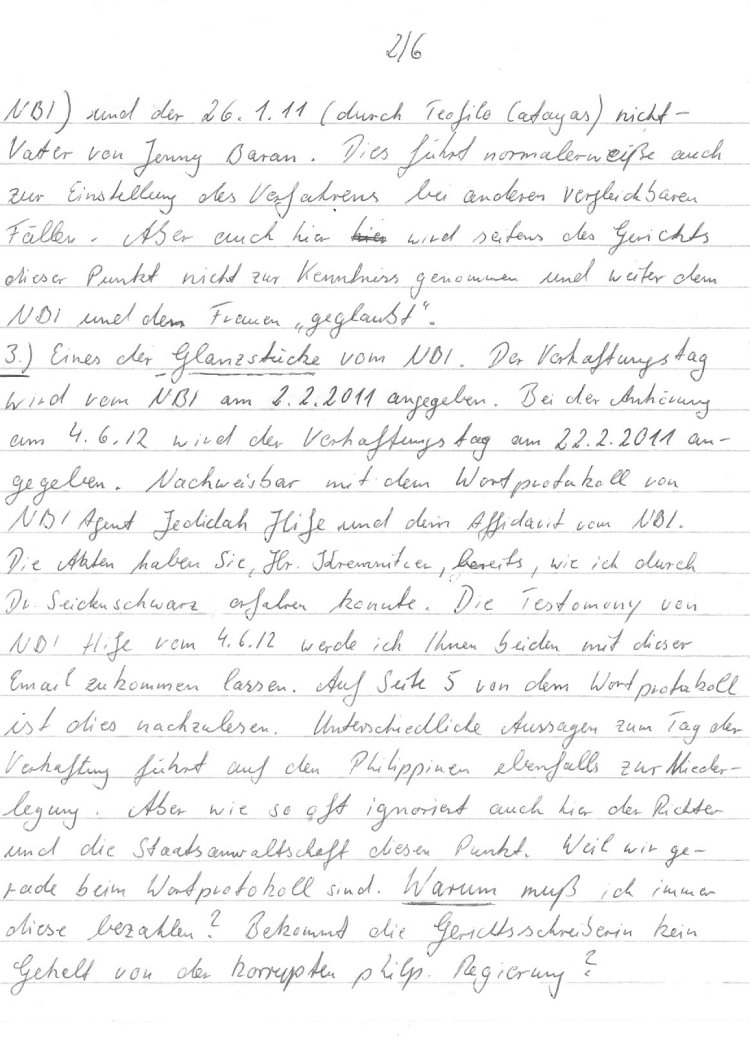 2/6
NBI) und der 26.1.11 (durch Teofilo Catayas) nicht-
Vater von Jenny Baran. Dies führt normalerweiße auch
zur Einstellung des Verfahrens bei anderen vergleichbaren
Fällen. Aber auch hier hier wird seitens des Gerichts
dieser Punkt nicht zur Kenntniss genommen und weiter dem
NBI und den Frauen „geglaubt".
3.) Eines der Glanzstücke vom NBI. Der Verhaftungstag
wird vom NBI am 2.2.2011 angegeben. Bei der Anhörung
am 4.6.12 wird der Verhaftungstag am 22.2.2011 an-
gegeben. Nachweisbar mit dem Wortprotokoll von
NBI Agent Jedidah Hife und dem Affidavit vom NBI.
Die Akten haben Sie, Hr. Kremnitzer, bereits, wie ich durch
Dr. Seidenschwarz erfahren konnte. Die Testomony von
NBI Hife vom 4.6.12 werde ich Ihnen beiden mit dieser
Email zukommen lassen. Auf Seite 5 von dem Wortprotokoll
ist dies nachzulesen. Unterschiedliche Aussagen zum Tag der
Verhaftung führt auf den Philippinen ebenfalls zur Nieder-
legung. Aber wie so oft ignoriert auch hier der Richter
und die Staatsanwaltschaft diesen Punkt. Weil wir ge-
rade beim Wortprotokoll sind. Warum muß ich immer
diese bezahlen? Bekommt die Gerichtsschreiberin kein
Gehalt von der korrypten philp. Regierung?